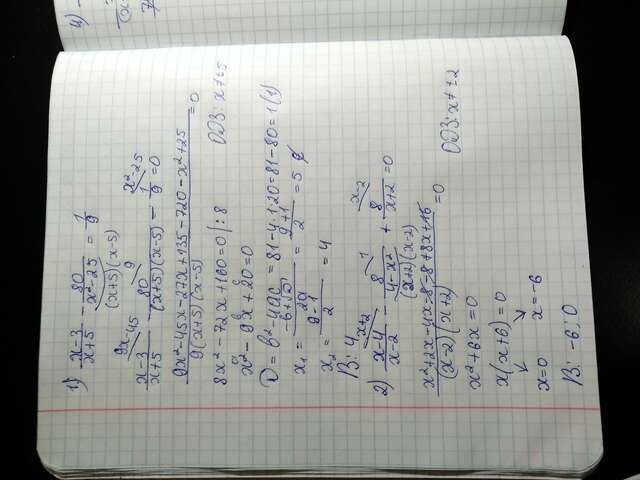 4)
1) x-3/x+5 - 80/x²-25 = 1/9
(x+5)(x-5)
9x-45 9 x²-25
x-3/x+5 - 80/(x+5)(x-5) - 1/9 = 0
9x²-45x-27x+135-720-x²+25/9(x+5)(x-5) = 0
8x²-72x+160=0 |:8 ОДЗ: x≠±5
x²-9x+20=0
a b c
D=b²-4ac=81-4·1·20=81-80=1(1)
x₁ = -b+√D/2a = 9+1/2 = 5
x₂ = 9-1/2 = 4
В: 4
x+2 1 x-2
2) x4/x-2 - 8/4-x² + 8/x+2 = 0
(x+2)(x-2)
x²+2x-4x-8-8+8x+16/(x-2)(x+2) = 0 ОДЗ: x≠±2
x²+6x=0
x(x+6)=0
x=0 x=-6
В: -6; 0